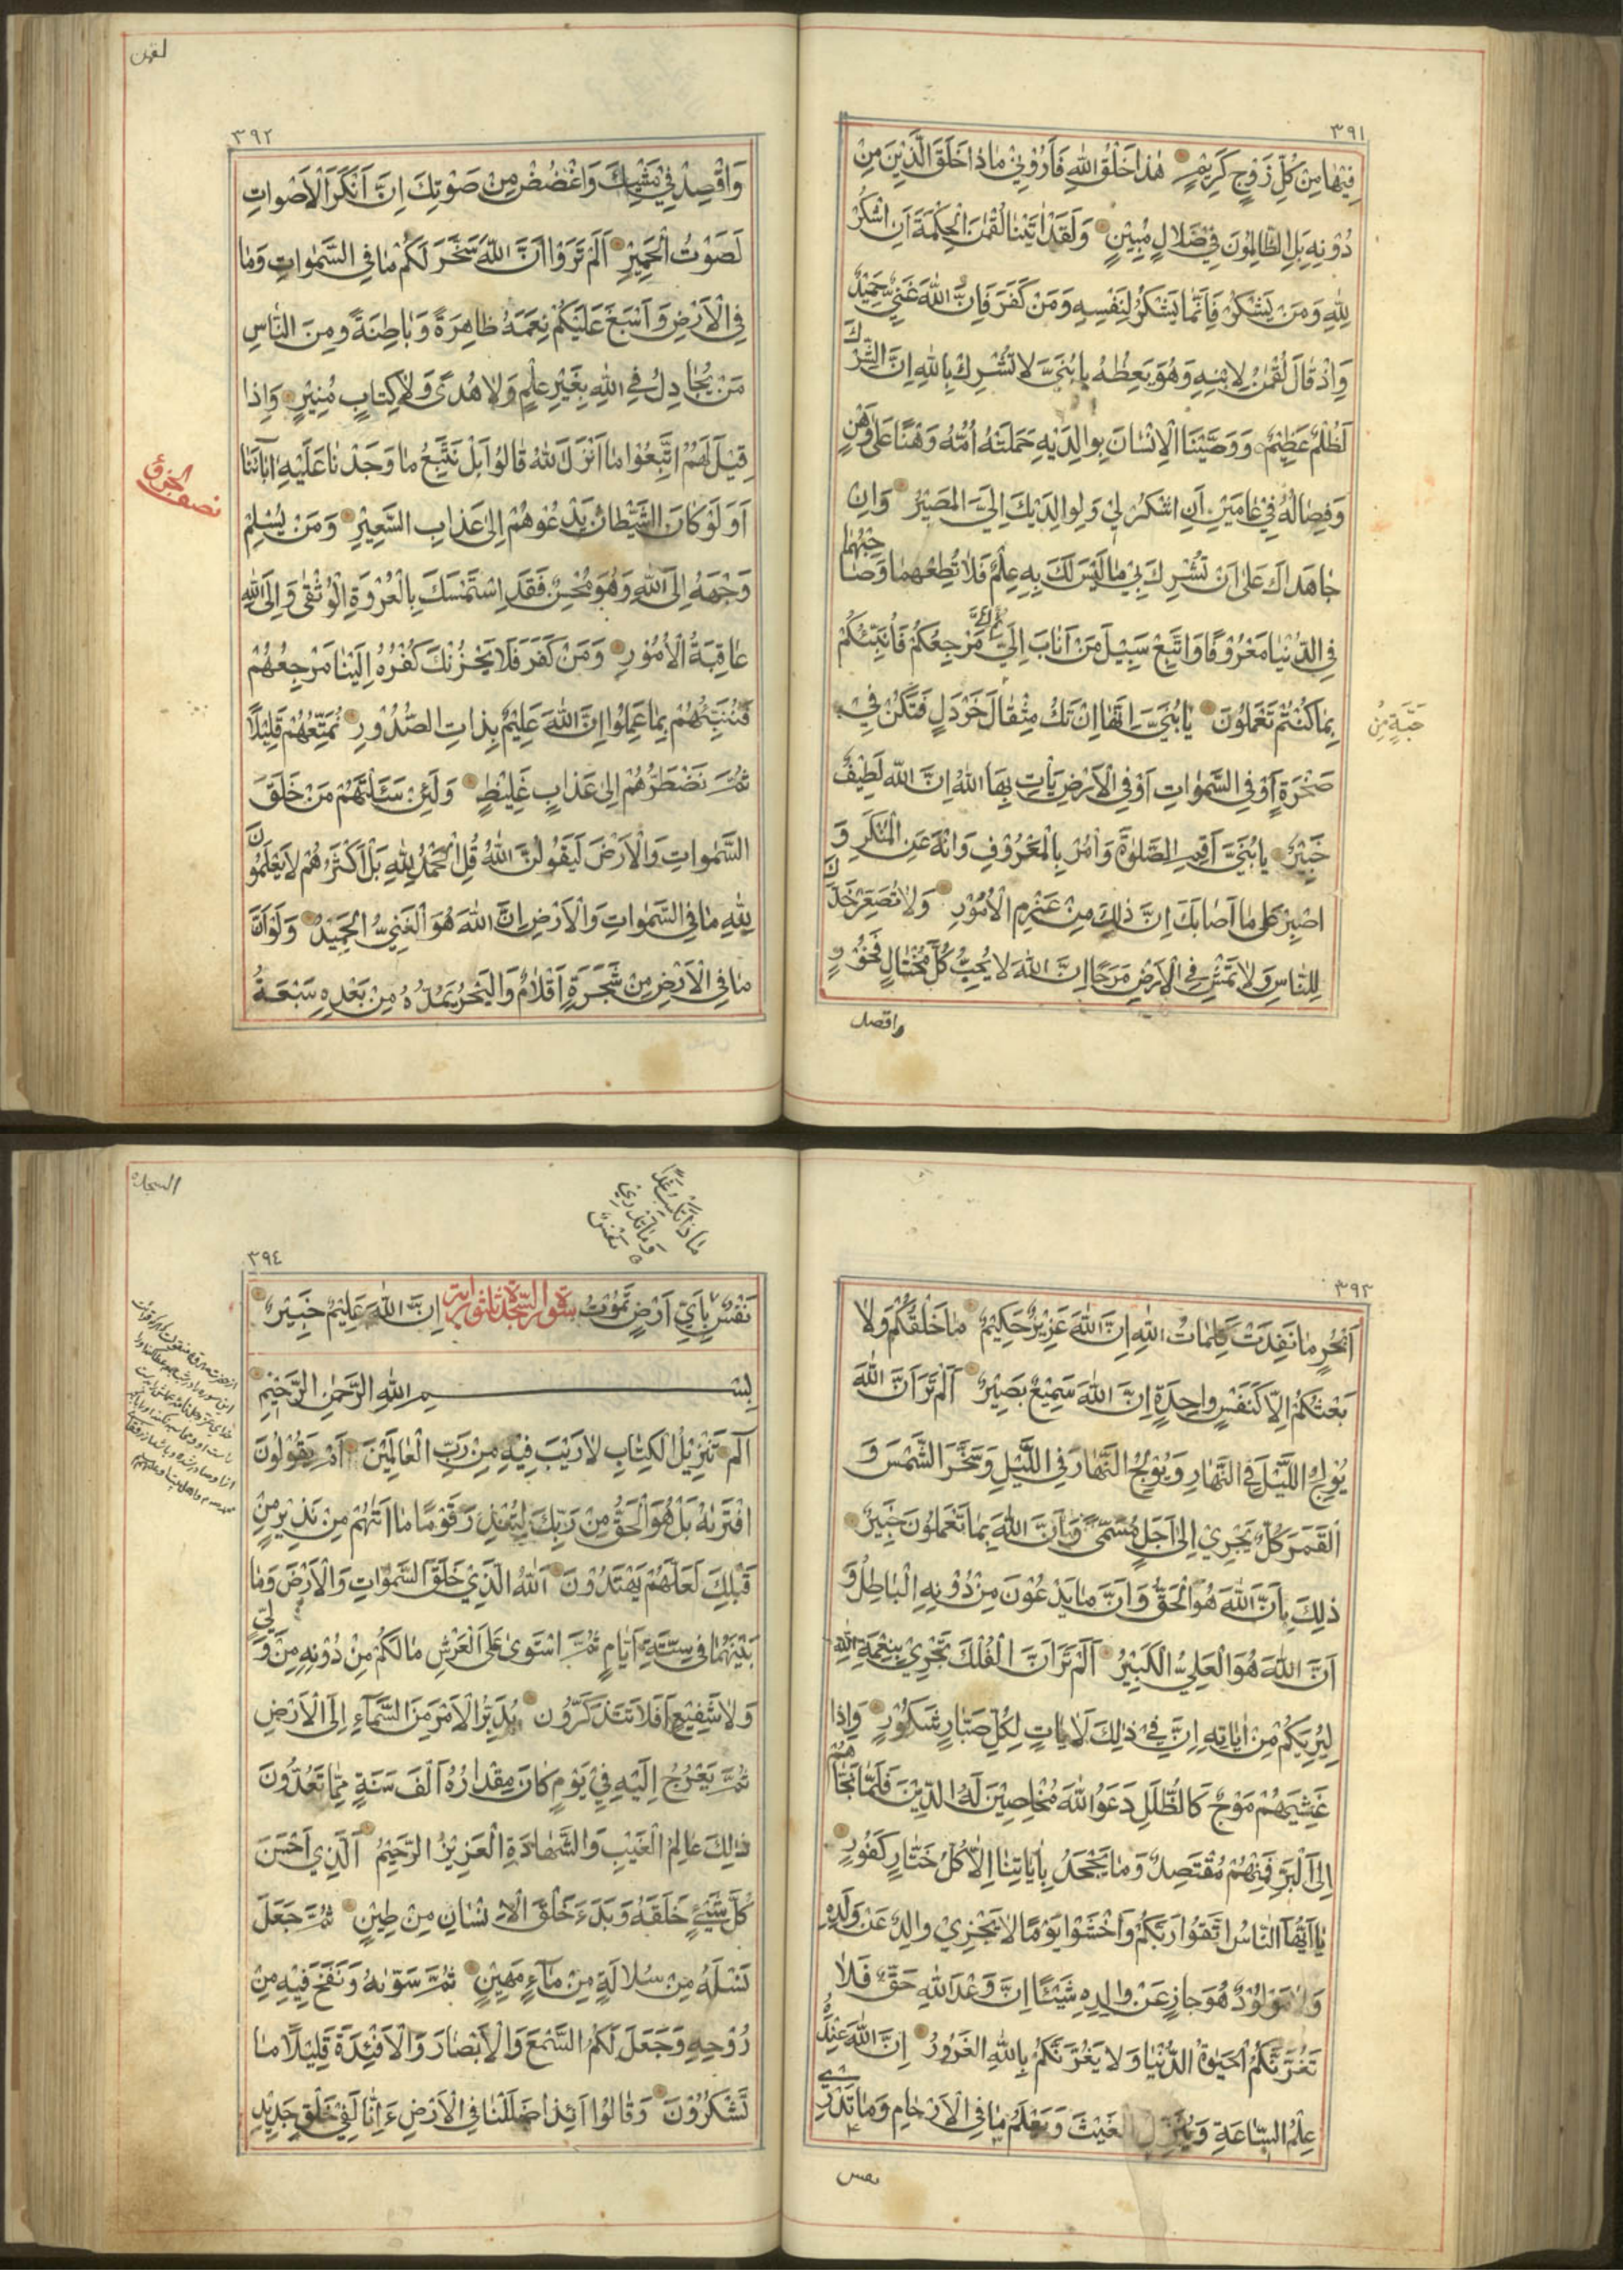 ٣٩١
فِيْها مِنْ كُلِّ زَوْجٍ كَرِيْمٍ هٰذا خَلْقُ اللهِ فَاَرُوْنِيْ ماذا خَلَقَ الَّذِيْنَ مِنْ
دُوْنِهِ بَلِ الظّالِمُونَ فِيْ ضَلالٍ مُبِيْنٍ وَلَقَدْ اٰتَيْنا لُقْمٰنَ الْحِكْمَةَ اَنِ اشْكُرْ
لِلّٰهِ وَمَنْ يَشْكُرْ فَاِنَّما يَشْكُرُ لِنَفْسِهِ وَمَنْ كَفَرَ فَاِنَّ اللهَ غَنِيٌّ حَمِيْدٌ
وَاِذْ قالَ لُقْمٰنُ لِابْنِهِ وَهُوَ يَعِظُهُ يا بُنَيَّ لا تُشْرِكْ بِاللهِ اِنَّ الشِّرْكَ
لَظُلْمٌ عَظِيْمٌ وَوَصَّيْنَا الْاِنْسانَ بِوالِدَيْهِ حَمَلَتْهُ اُمُّهُ وَهْنًا عَلىٰ وَهْنٍ
وَفِصالُهُ فِيْ عامَيْنِ اَنِ اشْكُرْ لِيْ وَلِوالِدَيْكَ اِلَيَّ الْمَصِيْرُ وَاِنْ
جاهَداكَ عَلىٰ اَنْ تُشْرِكَ بِيْ ما لَيْسَ لَكَ بِهِ عِلْمٌ فَلا تُطِعْهُما وَصاحِبْهُما
فِي الدُّنْيا مَعْرُوْفًا وَاتَّبِعْ سَبِيْلَ مَنْ اَنابَ اِلَيَّ ثُمَّ اِلَيَّ مَرْجِعُكُمْ فَاُنَبِّئُكُمْ
بِما كُنْتُمْ تَعْمَلُوْنَ يا بُنَيَّ اِنَّها اِنْ تَكُ مِثْقالَ خَرْدَلٍ فَتَكُنْ فِيْ
حَبَّةٍ مِنْ
صَخْرَةٍ اَوْ فِي السَّمٰواتِ اَوْ فِي الْاَرْضِ يَأْتِ بِهَا اللهُ اِنَّ اللهَ لَطِيْفٌ
خَبِيْرٌ يا بُنَيَّ اَقِمِ الصَّلٰوةَ وَأْمُرْ بِالْمَعْرُوْفِ وَانْهَ عَنِ الْمُنْكَرِ وَ
اصْبِرْ عَلىٰ ما اَصابَكَ اِنَّ ذٰلِكَ مِنْ عَزْمِ الْاُمُوْرِ وَلا تُصَعِّرْ خَدَّكَ
لِلنّاسِ وَلا تَمْشِ فِي الْاَرْضِ مَرَحًا اِنَّ اللهَ لا يُحِبُّ كُلَّ مُخْتالٍ فَخُوْرٍ
واقصد
لقمن
٣٩٢
وَاقْصِدْ فِيْ مَشْيِكَ وَاغْضُضْ مِنْ صَوْتِكَ اِنَّ اَنْكَرَ الْاَصْواتِ
لَصَوْتُ الْحَمِيْرِ اَلَمْ تَرَوْا اَنَّ اللهَ سَخَّرَ لَكُمْ ما فِي السَّمٰواتِ وَما
فِي الْاَرْضِ وَاَسْبَغَ عَلَيْكُمْ نِعَمَهُ ظاهِرَةً وَباطِنَةً وَمِنَ النّاسِ
مَنْ يُجادِلُ فِي اللهِ بِغَيْرِ عِلْمٍ وَلا هُدًى وَلا كِتابٍ مُنِيْرٍ وَاِذا
قِيْلَ لَهُمُ اتَّبِعُوْا ما اَنْزَلَ اللهُ قالُوْا بَلْ نَتَّبِعُ ما وَجَدْنا عَلَيْهِ اٰبآئَنا
نصف الجزؤ
اَوَلَوْ كانَ الشَّيْطانُ يَدْعُوْهُمْ اِلىٰ عَذابِ السَّعِيْرِ وَمَنْ يُسْلِمْ
وَجْهَهُ اِلَى اللهِ وَهُوَ مُحْسِنٌ فَقَدِ اسْتَمْسَكَ بِالْعُرْوَةِ الْوُثْقىٰ وَاِلَى اللهِ
عاقِبَةُ الْاُمُوْرِ وَمَنْ كَفَرَ فَلا يَحْزُنْكَ كُفْرُهُ اِلَيْنا مَرْجِعُهُمْ
فَنُنَبِّئُهُمْ بِما عَمِلُوْا اِنَّ اللهَ عَلِيْمٌ بِذاتِ الصُّدُوْرِ نُمَتِّعُهُمْ قَلِيْلًا
ثُمَّ نَضْطَرُّهُمْ اِلىٰ عَذابٍ غَلِيْظٍ وَلَئِنْ سَئَلْتَهُمْ مَنْ خَلَقَ
السَّمٰواتِ وَالْاَرْضَ لَيَقُوْلُنَّ اللهُ قُلِ الْحَمْدُ لِلّٰهِ بَلْ اَكْثَرُهُمْ لا يَعْلَمُوْنَ
لِلّٰهِ ما فِي السَّمٰواتِ وَالْاَرْضِ اِنَّ اللهَ هُوَ الْغَنِيُّ الْحَمِيْدُ وَلَوْ اَنَّ
ما فِي الْاَرْضِ مِنْ شَجَرَةٍ اَقْلامٌ وَالْبَحْرُ يَمُدُّهُ مِنْ بَعْدِهِ سَبْعَةُ
٣٩٣
اَبْحُرٍ ما نَفِدَتْ كَلِماتُ اللهِ اِنَّ اللهَ عَزِيْزٌ حَكِيْمٌ ما خَلْقُكُمْ وَلا
بَعْثُكُمْ اِلّا كَنَفْسٍ واحِدَةٍ اِنَّ اللهَ سَمِيْعٌ بَصِيْرٌ اَلَمْ تَرَ اَنَّ اللهَ
يُوْلِجُ اللَّيْلَ فِي النَّهارِ وَيُوْلِجُ النَّهارَ فِي اللَّيْلِ وَسَخَّرَ الشَّمْسَ وَ
الْقَمَرَ كُلٌّ يَجْرِيْ اِلىٰ اَجَلٍ مُسَمًّى وَاَنَّ اللهَ بِما تَعْمَلُوْنَ خَبِيْرٌ
ذٰلِكَ بِاَنَّ اللهَ هُوَ الْحَقُّ وَاَنَّ ما يَدْعُوْنَ مِنْ دُوْنِهِ الْباطِلُ وَ
اَنَّ اللهَ هُوَ الْعَلِيُّ الْكَبِيْرُ اَلَمْ تَرَ اَنَّ الْفُلْكَ تَجْرِيْ بِنِعْمَةِ اللهِ
لِيُرِيَكُمْ مِنْ اٰياتِهِ اِنَّ فِيْ ذٰلِكَ لَاٰياتٍ لِكُلِّ صَبّارٍ شَكُوْرٍ وَاِذا
غَشِيَهُمْ مَوْجٌ كَالظُّلَلِ دَعَوُا اللهَ مُخْلِصِيْنَ لَهُ الدِّيْنَ فَلَمّا نَجّاهُمْ
اِلَى الْبَرِّ فَمِنْهُمْ مُقْتَصِدٌ وَما يَجْحَدُ بِاٰياتِنا اِلّا كُلُّ خَتّارٍ كَفُوْرٍ
يا اَيُّهَا النّاسُ اتَّقُوْا رَبَّكُمْ وَاخْشَوْا يَوْمًا لا يَجْزِيْ والِدٌ عَنْ وَلَدِهِ
وَلا مَوْلُوْدٌ هُوَ جازٍ عَنْ والِدِهِ شَيْئًا اِنَّ وَعْدَ اللهِ حَقٌّ فَلا
تَغُرَّنَّكُمُ الْحَيٰوةُ الدُّنْيا وَلا يَغُرَّنَّكُمْ بِاللهِ الْغَرُوْرُ اِنَّ اللهَ عِنْدَهُ
عِلْمُ السّاعَةِ وَيُنَزِّلُ الْغَيْثَ وَيَعْلَمُ ما فِي الْاَرْحامِ وَما تَدْرِيْ
نفس
السجدة
ماذا تَكْسِبُ غَدًا
وَما تَدْرِيْ
نَفْسٌ
٣٩٤
نَفْسٌ بِاَيِّ اَرْضٍ تَمُوْتُ اِنَّ اللهَ عَلِيْمٌ خَبِيْرٌ
سورة السجدة ثلثون اية
بِسْمِ اللهِ الرَّحْمٰنِ الرَّحِيْمِ
الٓمٓ تَنْزِيْلُ الْكِتابِ لا رَيْبَ فِيْهِ مِنْ رَبِّ الْعالَمِيْنَ اَمْ يَقُوْلُوْنَ
افْتَرٰىهُ بَلْ هُوَ الْحَقُّ مِنْ رَبِّكَ لِتُنْذِرَ قَوْمًا ما اَتٰهُمْ مِنْ نَذِيْرٍ مِنْ
قَبْلِكَ لَعَلَّهُمْ يَهْتَدُوْنَ اَللهُ الَّذِيْ خَلَقَ السَّمٰواتِ وَالْاَرْضَ وَما
بَيْنَهُما فِيْ سِتَّةِ اَيّامٍ ثُمَّ اسْتَوىٰ عَلَى الْعَرْشِ ما لَكُمْ مِنْ دُوْنِهِ مِنْ وَلِيٍّ
وَلا شَفِيْعٍ اَفَلا تَتَذَكَّرُوْنَ يُدَبِّرُ الْاَمْرَ مِنَ السَّمآءِ اِلَى الْاَرْضِ
ثُمَّ يَعْرُجُ اِلَيْهِ فِيْ يَوْمٍ كانَ مِقْدارُهُ اَلْفَ سَنَةٍ مِمّا تَعُدُّوْنَ
ذٰلِكَ عالِمُ الْغَيْبِ وَالشَّهادَةِ الْعَزِيْزُ الرَّحِيْمُ اَلَّذِيْ اَحْسَنَ
كُلَّ شَيْئٍ خَلَقَهُ وَبَدَءَ خَلْقَ الْاِنْسانِ مِنْ طِيْنٍ ثُمَّ جَعَلَ
نَسْلَهُ مِنْ سُلالَةٍ مِنْ مآءٍ مَهِيْنٍ ثُمَّ سَوّٰىهُ وَنَفَخَ فِيْهِ مِنْ
رُوْحِهِ وَجَعَلَ لَكُمُ السَّمْعَ وَالْاَبْصارَ وَالْاَفْئِدَةَ قَلِيْلًا ما
تَشْكُرُوْنَ وَقالُوْا اَئِذا ضَلَلْنا فِي الْاَرْضِ ءَاِنّا لَفِيْ خَلْقٍ جَدِيْدٍ